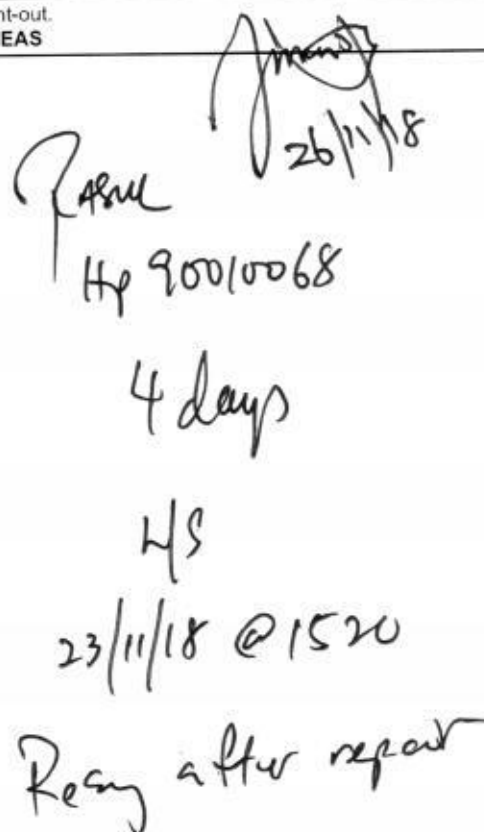 nt-out.
EAS
26/11/18
Rasul
Hp 90010068
4 days
L/S
23/11/18 @ 1520
after repair